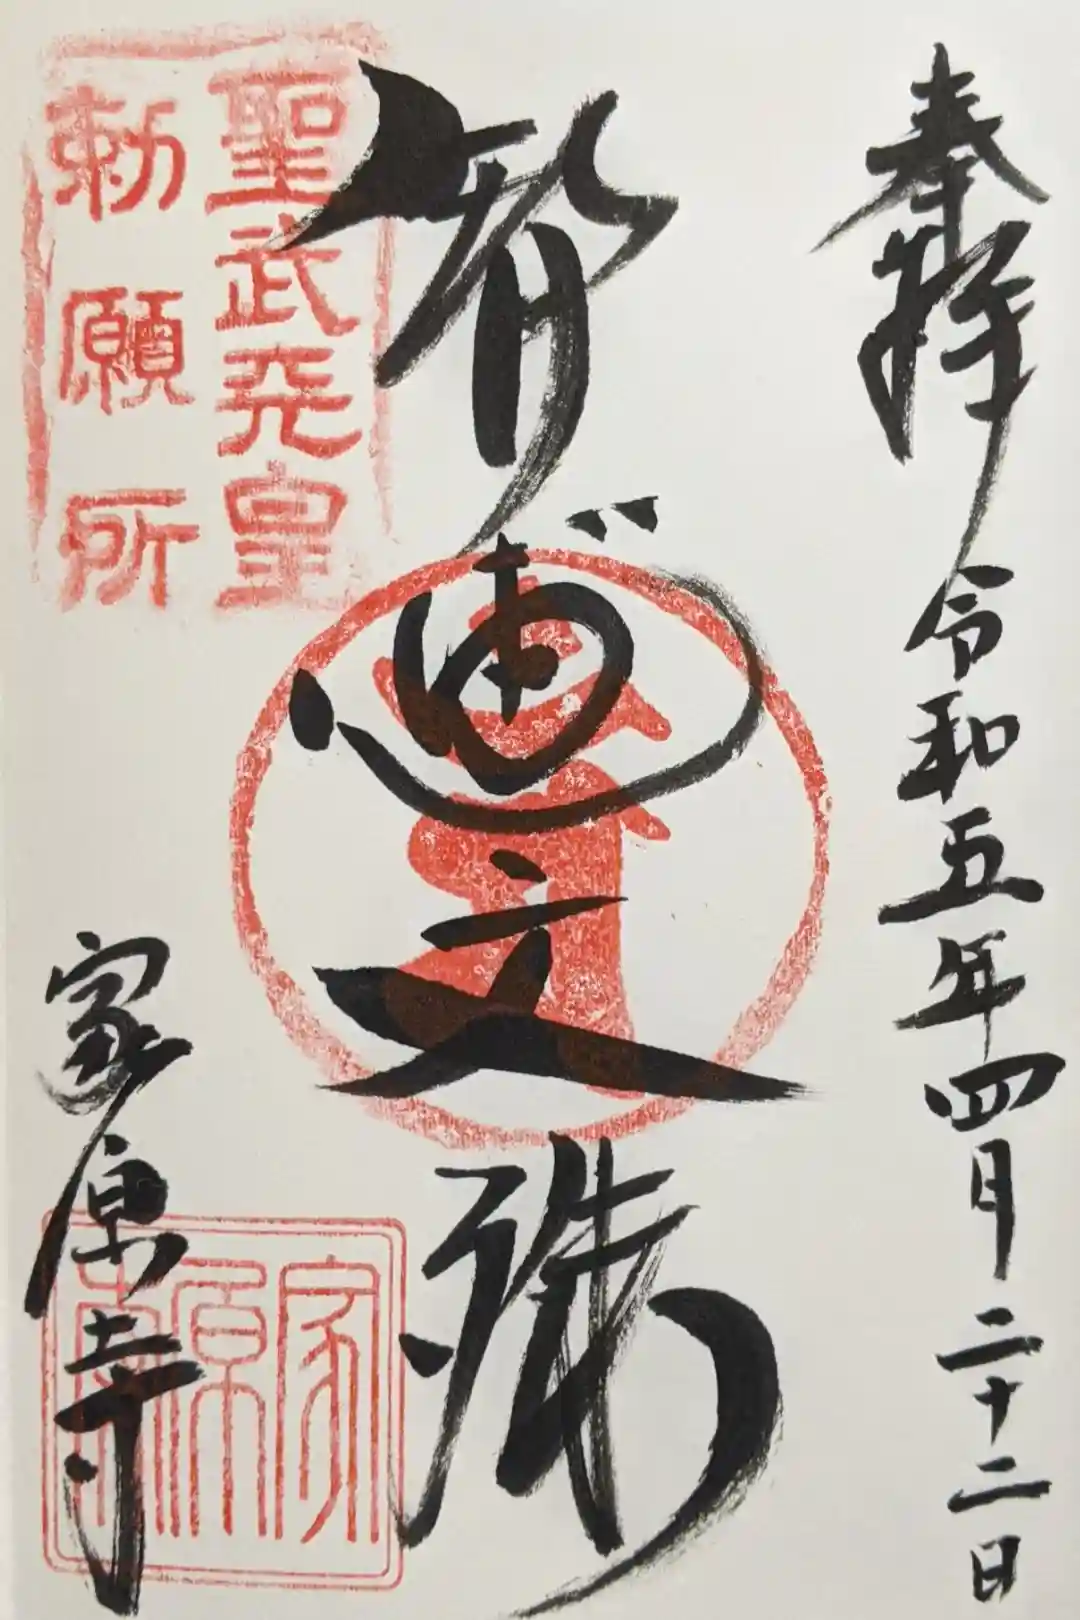 奉拝 令和五年四月二十二日
智恵文殊
家原寺
聖武天皇
勅願所
家原寺